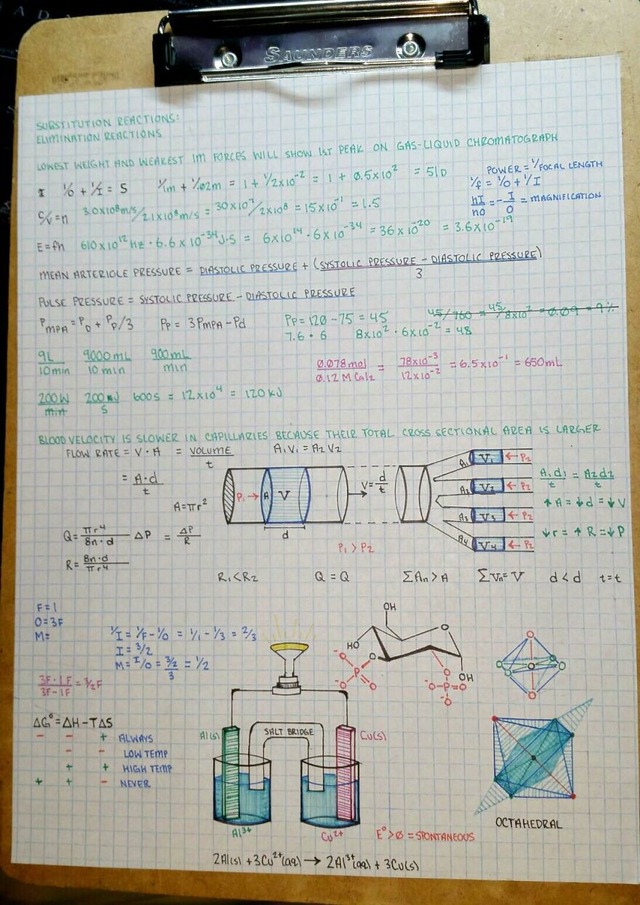 SAUNDERS
SUBSTITUTION REACTIONS:
ELIMINATION REACTIONS
LOWEST WEIGHT AND WEAKEST IM FORCES WILL SHOW 1ST PEAK ON GAS-LIQUID CHROMATOGRAPH
I 1/O + 1/I = S 1/1m + 1/.02m = 1 + 1/2x10⁻² = 1 + 0.5x10² = 51D
POWER = 1/FOCAL LENGTH
1/f = 1/O + 1/I
hI/hO = -I/O = MAGNIFICATION
C/V = n 3.0x10⁸m/s/2.1x10⁸m/s = 30x10⁷/2x10⁸ = 15x10⁻¹ = 1.5
E = fh 610x10¹²Hz · 6.6x10⁻³⁴J·S = 6x10¹⁴ · 6x10⁻³⁴ = 36x10⁻²⁰ = 3.6x10⁻¹⁹
MEAN ARTERIOLE PRESSURE = DIASTOLIC PRESSURE + (SYSTOLIC PRESSURE - DIASTOLIC PRESSURE)/3
PULSE PRESSURE = SYSTOLIC PRESSURE - DIASTOLIC PRESSURE
PMPA = PD + PP/3 PP = 3PMPA - Pd PP = 120 - 75 = 45 45/760 = 45/8x10² = 0.09 = 9%
7.6 · 6 8x10² · 6x10⁻² = 48
9L/10min 9000mL/10min 900mL/min
0.078mol/0.12M CaI₂ = 78x10⁻³/12x10⁻² = 6.5x10⁻¹ = 650mL
200W/min 200J/S 600S = 12x10⁴ = 120KJ
BLOOD VELOCITY IS SLOWER IN CAPILLARIES BECAUSE THEIR TOTAL CROSS SECTIONAL AREA IS LARGER
FLOW RATE = V·A = VOLUME/t A₁V₁ = A₂V₂
= A·d/t
A=πr²
P₁ → A V
d
V=d/t
A₁ V₁ ← P₂
A₂ V₂ ← P₂
A₃ V₃ ← P₂
A₄ V₄ ← P₂
A₁d₁/t = A₂d₂/t
↑A = ↓d = ↓V
↓r = ↑R = ↓P
Q = πr⁴/8n·d ΔP = ΔP/R
P₁ > P₂
R = 8n·d/πr⁴
R₁<R₂ Q = Q ΣAn > A ΣVn = V d < d t = t
F=1
O=3F
M=
1/I = 1/F - 1/O = 1/1 - 1/3 = 2/3
I = 3/2
M = I/O = 3/2/3 = 1/2
3F·1F/3F-1F = 3/2F
OH
HO
O
O
O
P
O
OH
O-P=O
O
ΔG° = ΔH - TΔS
- - + ALWAYS
- - LOW TEMP
+ + HIGH TEMP
+ + - NEVER
Al(s)
SALT BRIDGE
Cu(s)
Al³⁺
Cu²⁺
E°>0 = SPONTANEOUS
OCTAHEDRAL
2Al(s) + 3Cu²⁺(aq) → 2Al³⁺(aq) + 3Cu(s)